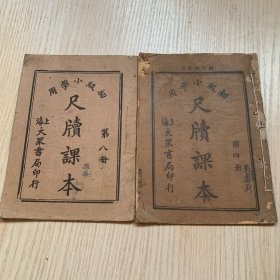 初級小學用
尺牘課本
第八册
上海大眾書局印行
初級小學用
尺牘課本
第四册
上海大眾書局印行